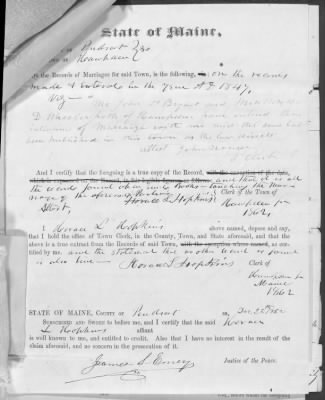 State of Maine.
Penobscot
On the Records of Marriages for said Town, is the following, on the records
made & entered in the year A.D. 1847,
Viz
Mr John Bryant and Miss
D. Wheeler both of Hampden have entered their
intentions of Marriage with me and the same has been
published in this town as the law directs
Attest John
T. Clerk
And I certify that the foregoing is a true copy of the Record, with the exception of the date,
which is expressed on the Record, in fair legible figures as follows and that it is all
the record found on my Books touching the Mar-
riage of the aforesaid Parties
Attest, Horace L. Hopkins Clerk of the Town of
Hampden for
1862
I Horace L Hopkins above named, depose and say,
that I hold the office of Town Clerk, in the County, Town and State aforesaid, and that the
above is a true extract from the Records of said Town, with the exception above named, as cer-
tified by me. and the statement that no other record is found
is also true
Horace L Hopkins Clerk of
Hampden for
Maine
1862
STATE OF MAINE, COUNTY OF Penobscot ss. Dec 22d 1862
SUBSCRIBED AND SWORN to before me, and I certify that the said Horace
L Hopkins affiant
is well known to me, and entitled to credit. Also that I have no interest in the result of the
claim aforesaid, and no concern in the prosecution of it.
James S. Emery Justice of the Peace.